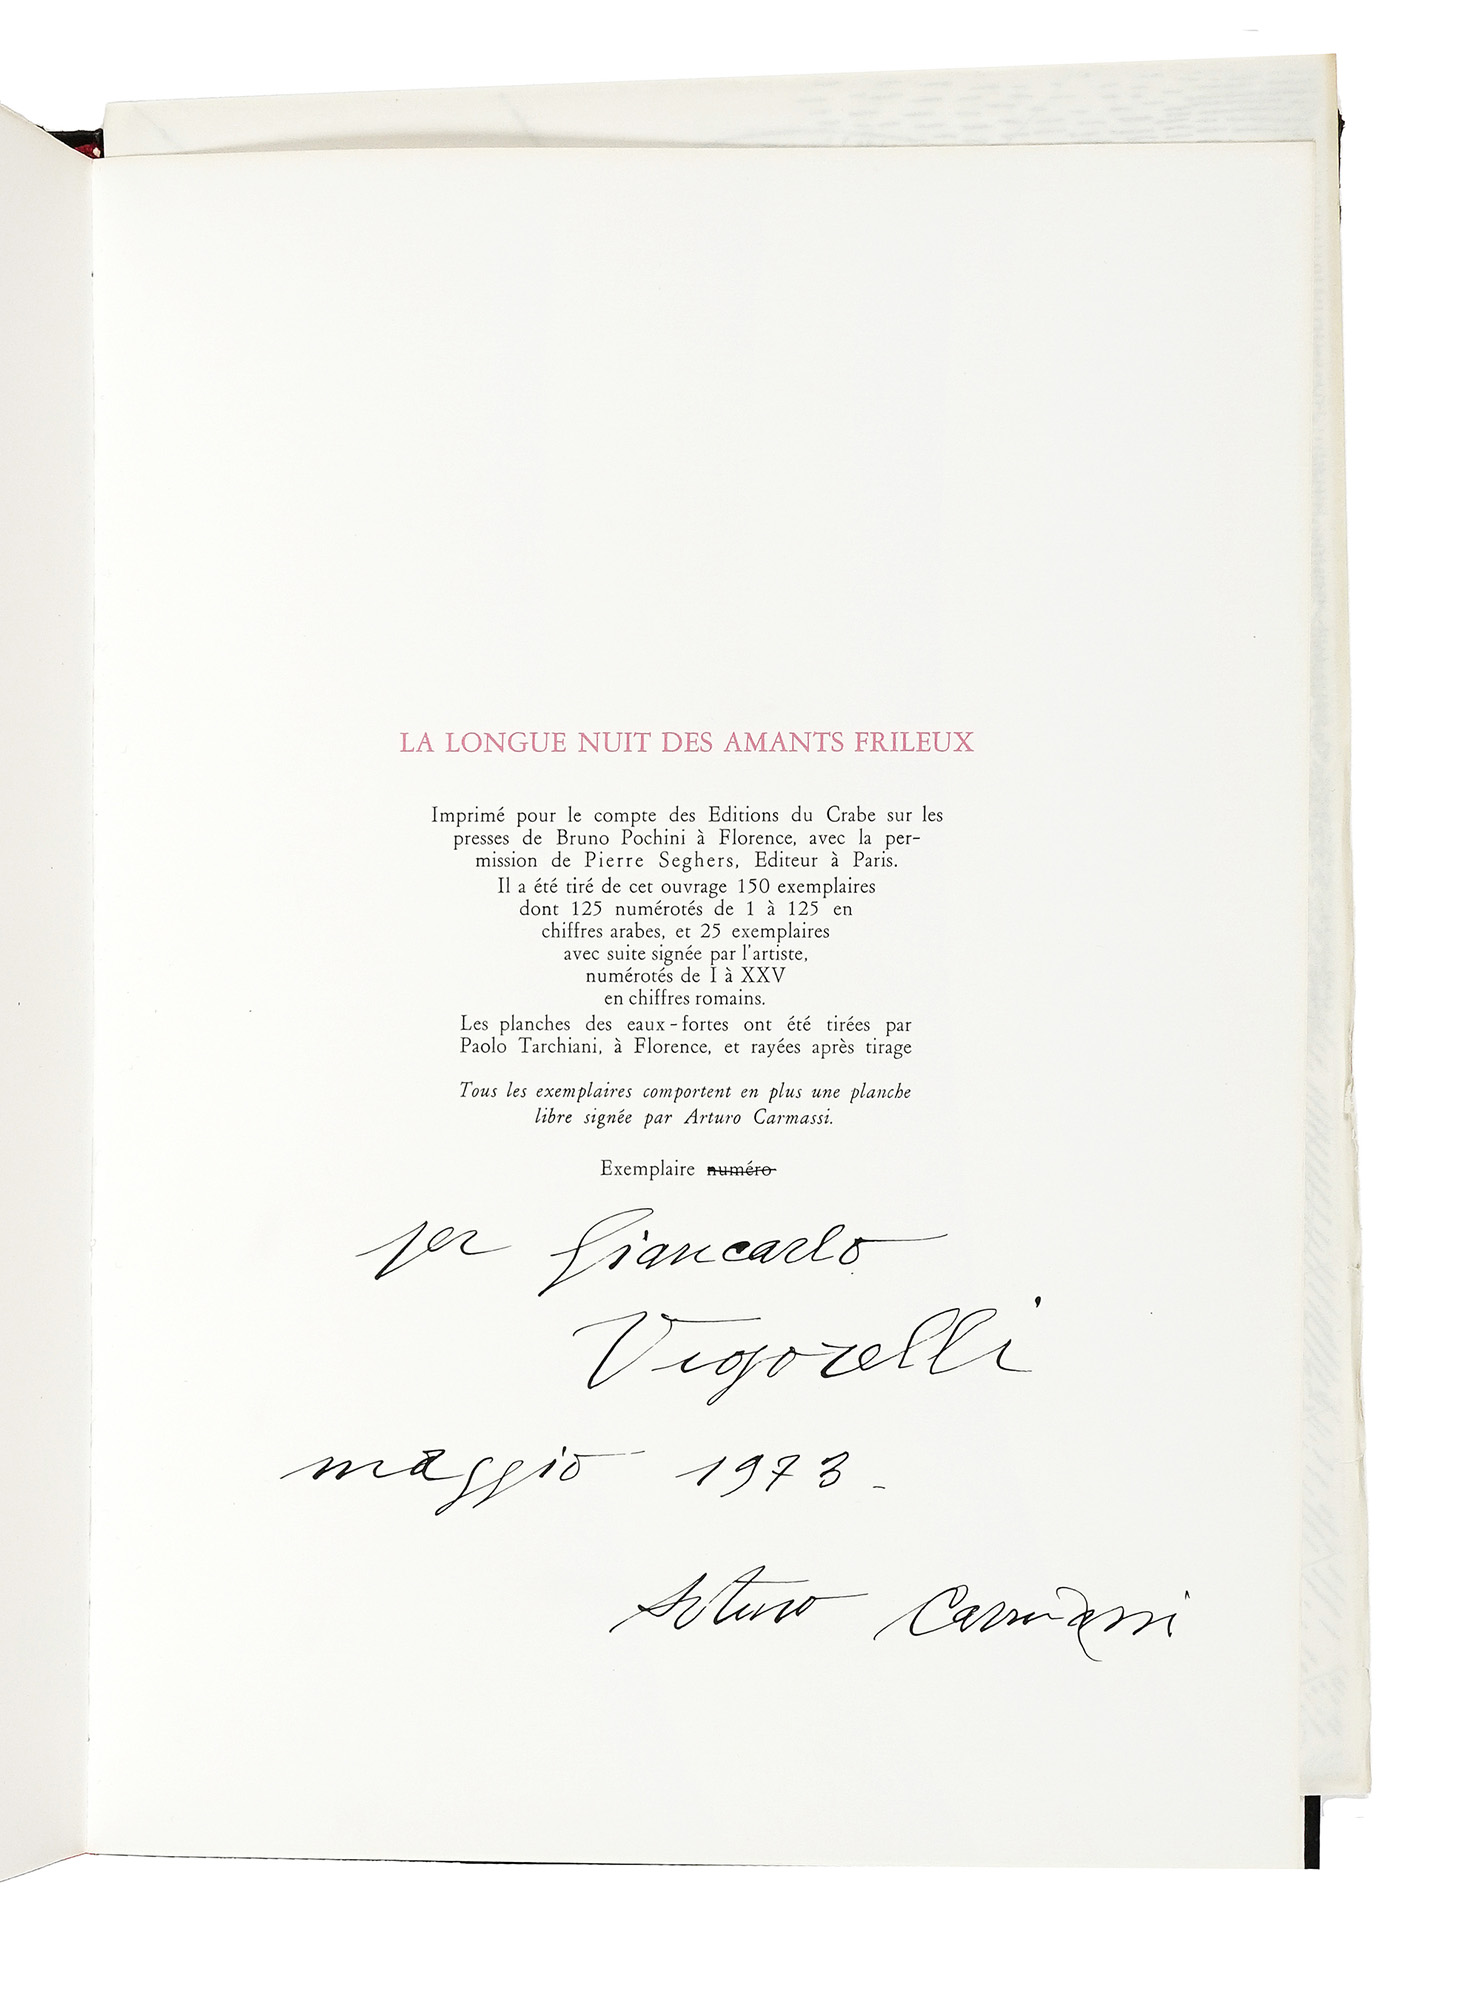 LA LONGUE NUIT DES AMANTS FRILEUX
Imprimé pour le compte des Editions du Crabe sur les
presses de Bruno Pochini à Florence, avec la per-
mission de Pierre Seghers, Editeur à Paris.
Il a été tiré de cet ouvrage 150 exemplaires
dont 125 numérotés de 1 à 125 en
chiffres arabes, et 25 exemplaires
avec suite signée par l'artiste,
numérotés de I à XXV
en chiffres romains.
Les planches des eaux-fortes ont été tirées par
Paolo Tarchiani, à Florence, et rayées après tirage
Tous les exemplaires comportent en plus une planche
libre signée par Arturo Carmassi.
Exemplaire numéro
per Giancarlo
Vigorelli
maggio 1973 -
Arturo Carmassi